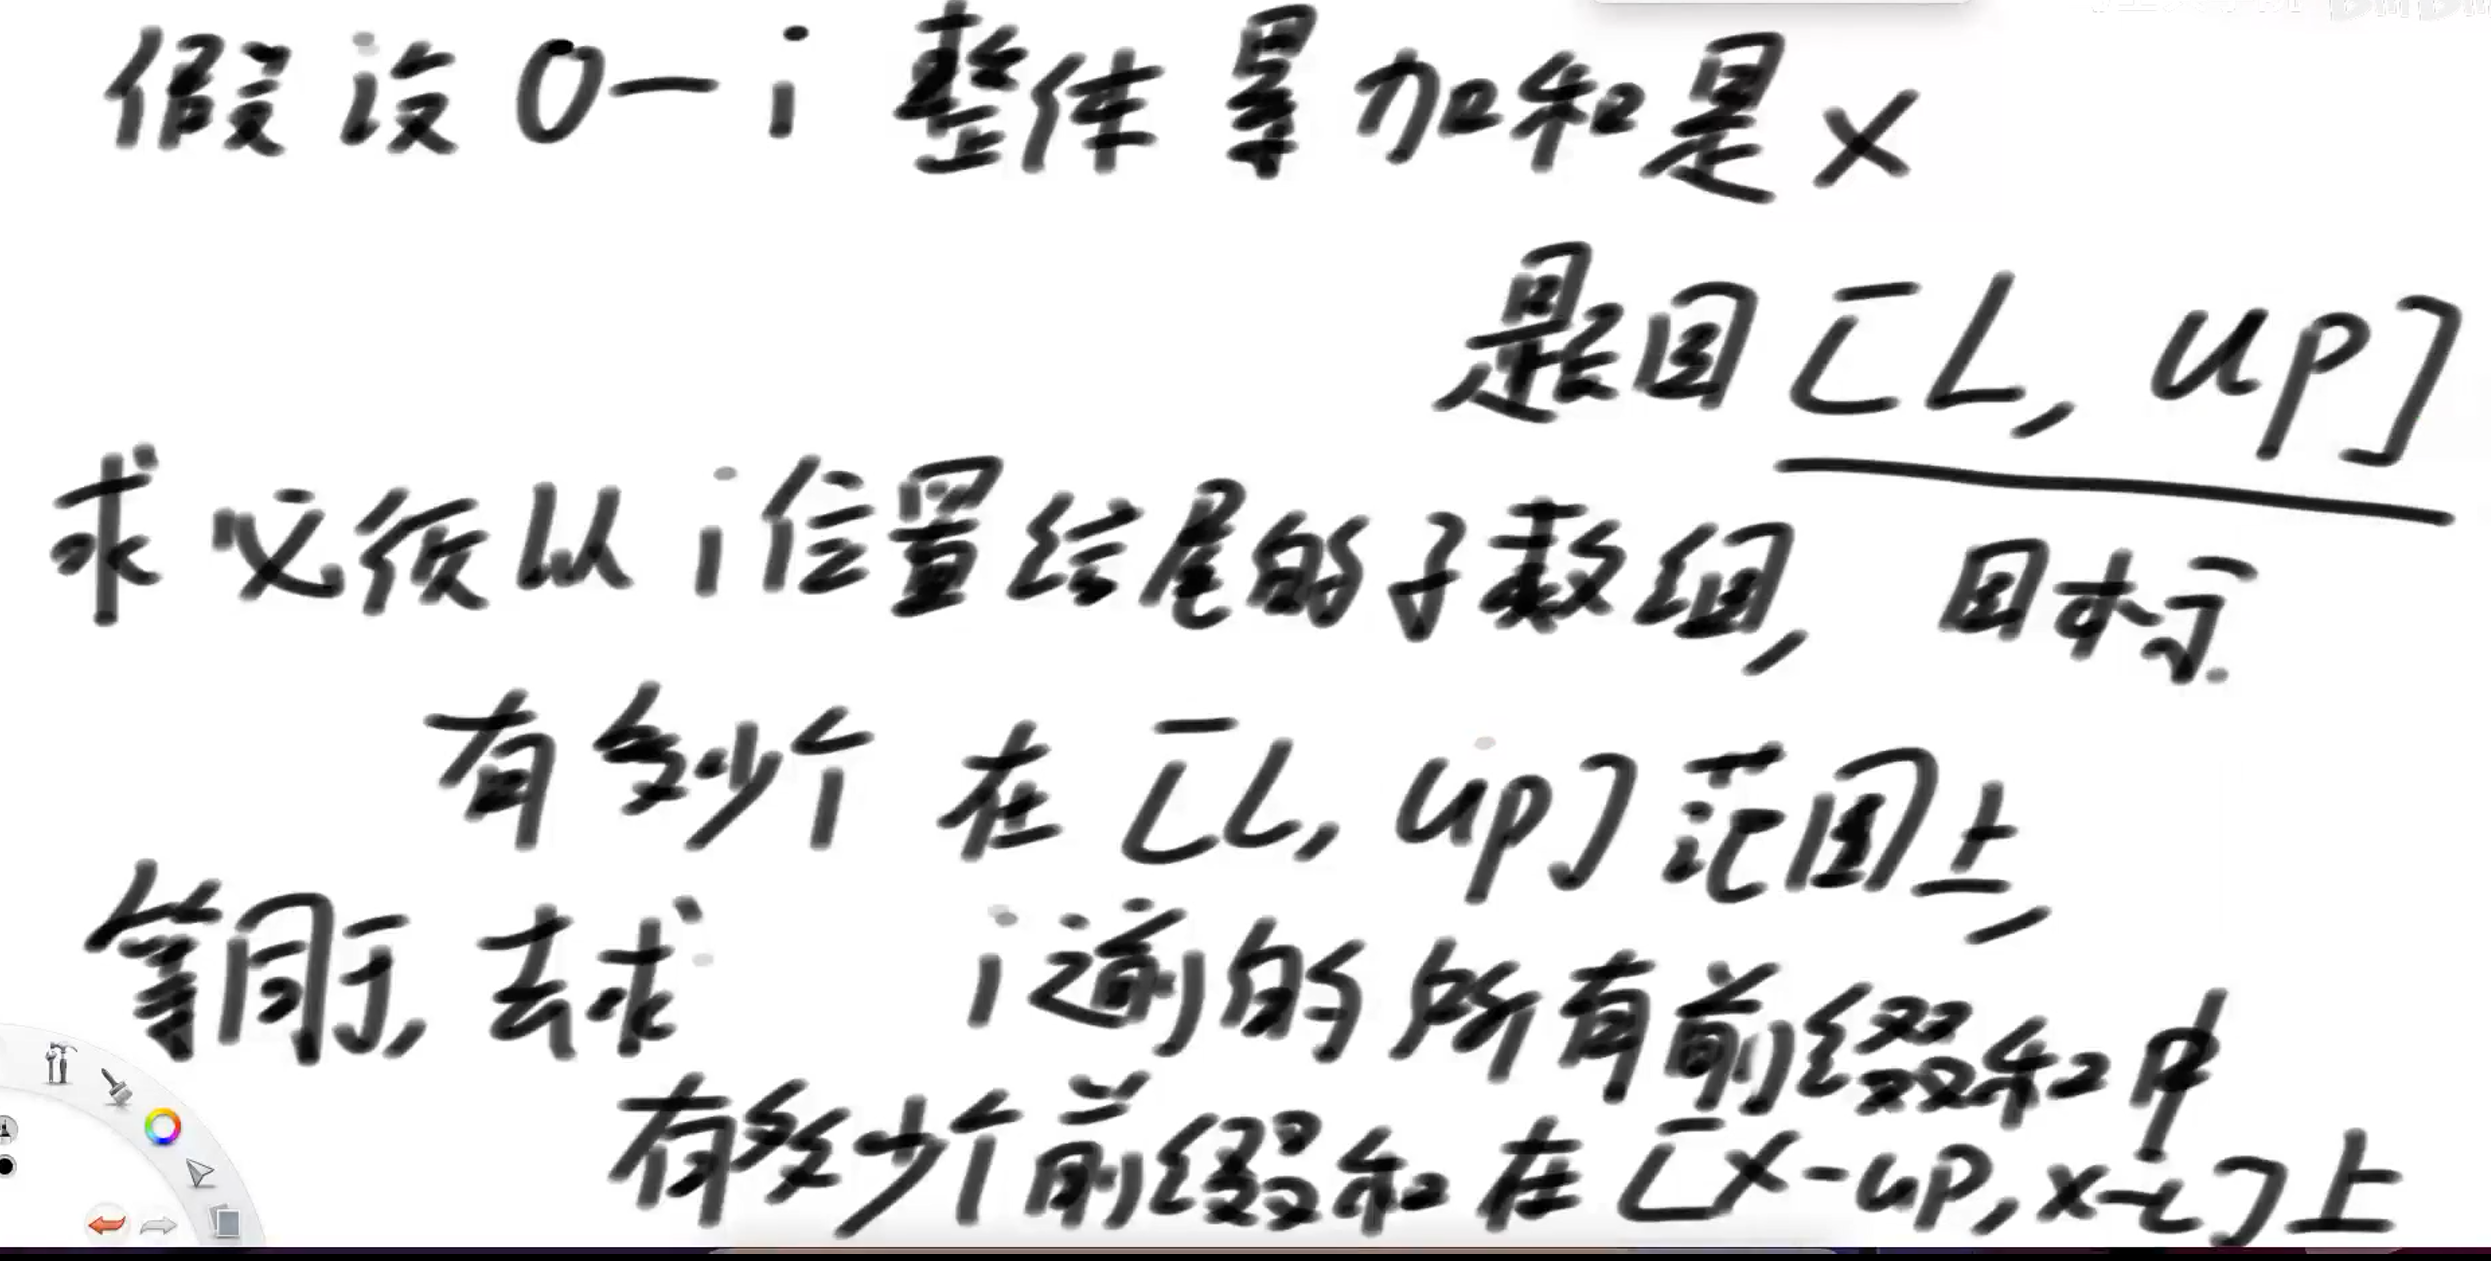 假设 0-i 整体累加和是 x
题目 [L, up]
求必须以 i 位置结尾的子数组, 目标
有多少个 在 [L, up] 范围上,
等同于, 去求 i 之前的所有前缀和中
有多少个前缀和在 [x-up, x-L] 上